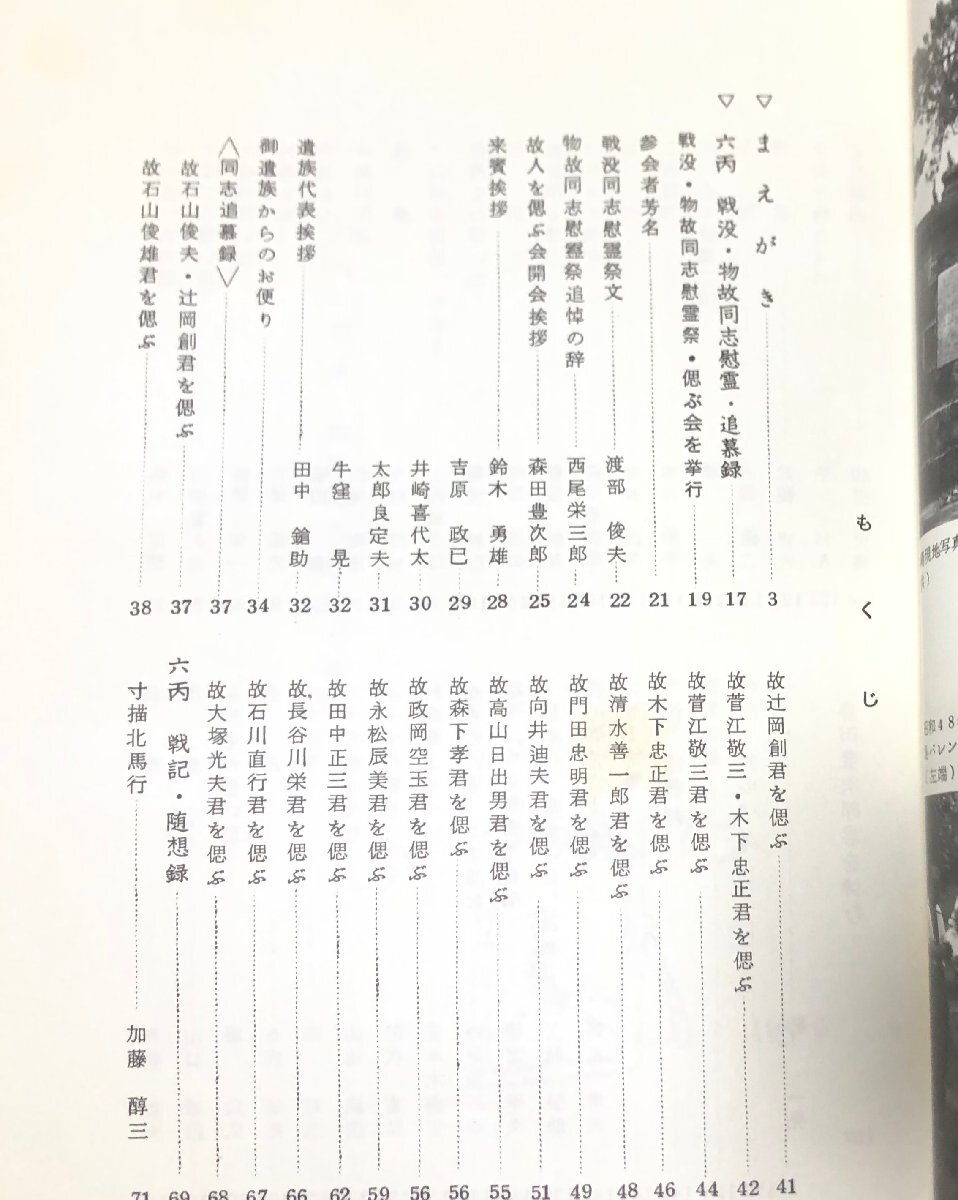 もくじ
▽ まえがき 3
▽ 六丙 戦没・物故同志慰霊・追慕録 17
戦没・物故同志慰霊祭・偲ぶ会を挙行 19
参会者芳名 21
戦没同志慰霊祭文 渡部 俊夫 22
物故同志慰霊祭追悼の辞 西尾栄三郎 24
故人を偲ぶ会開会挨拶 森田豊次郎 25
来賓挨拶 鈴木 勇雄 28
吉原 政巳 29
井崎喜代太 30
太郎良定夫 31
牛窪 晃 32
遺族代表挨拶 田中 鎗助 32
御遺族からのお便り 34
〈同志追慕録〉 37
故石山俊夫・辻岡創君を偲ぶ 37
故石山俊雄君を偲ぶ 38
故辻岡創君を偲ぶ 41
故菅江敬三・木下忠正君を偲ぶ 42
故菅江敬三君を偲ぶ 44
故木下忠正君を偲ぶ 46
故清水善一郎君を偲ぶ 48
故門田忠明君を偲ぶ 49
故向井迪夫君を偲ぶ 51
故高山日出男君を偲ぶ 55
故森下孝君を偲ぶ 56
故政岡空玉君を偲ぶ 56
故永松辰美君を偲ぶ 59
故田中正三君を偲ぶ 62
故長谷川栄君を偲ぶ 66
故石川直行君を偲ぶ 67
故大塚光夫君を偲ぶ 68
六丙 戦記・随想録 69
寸描北馬行 加藤 醇三 71